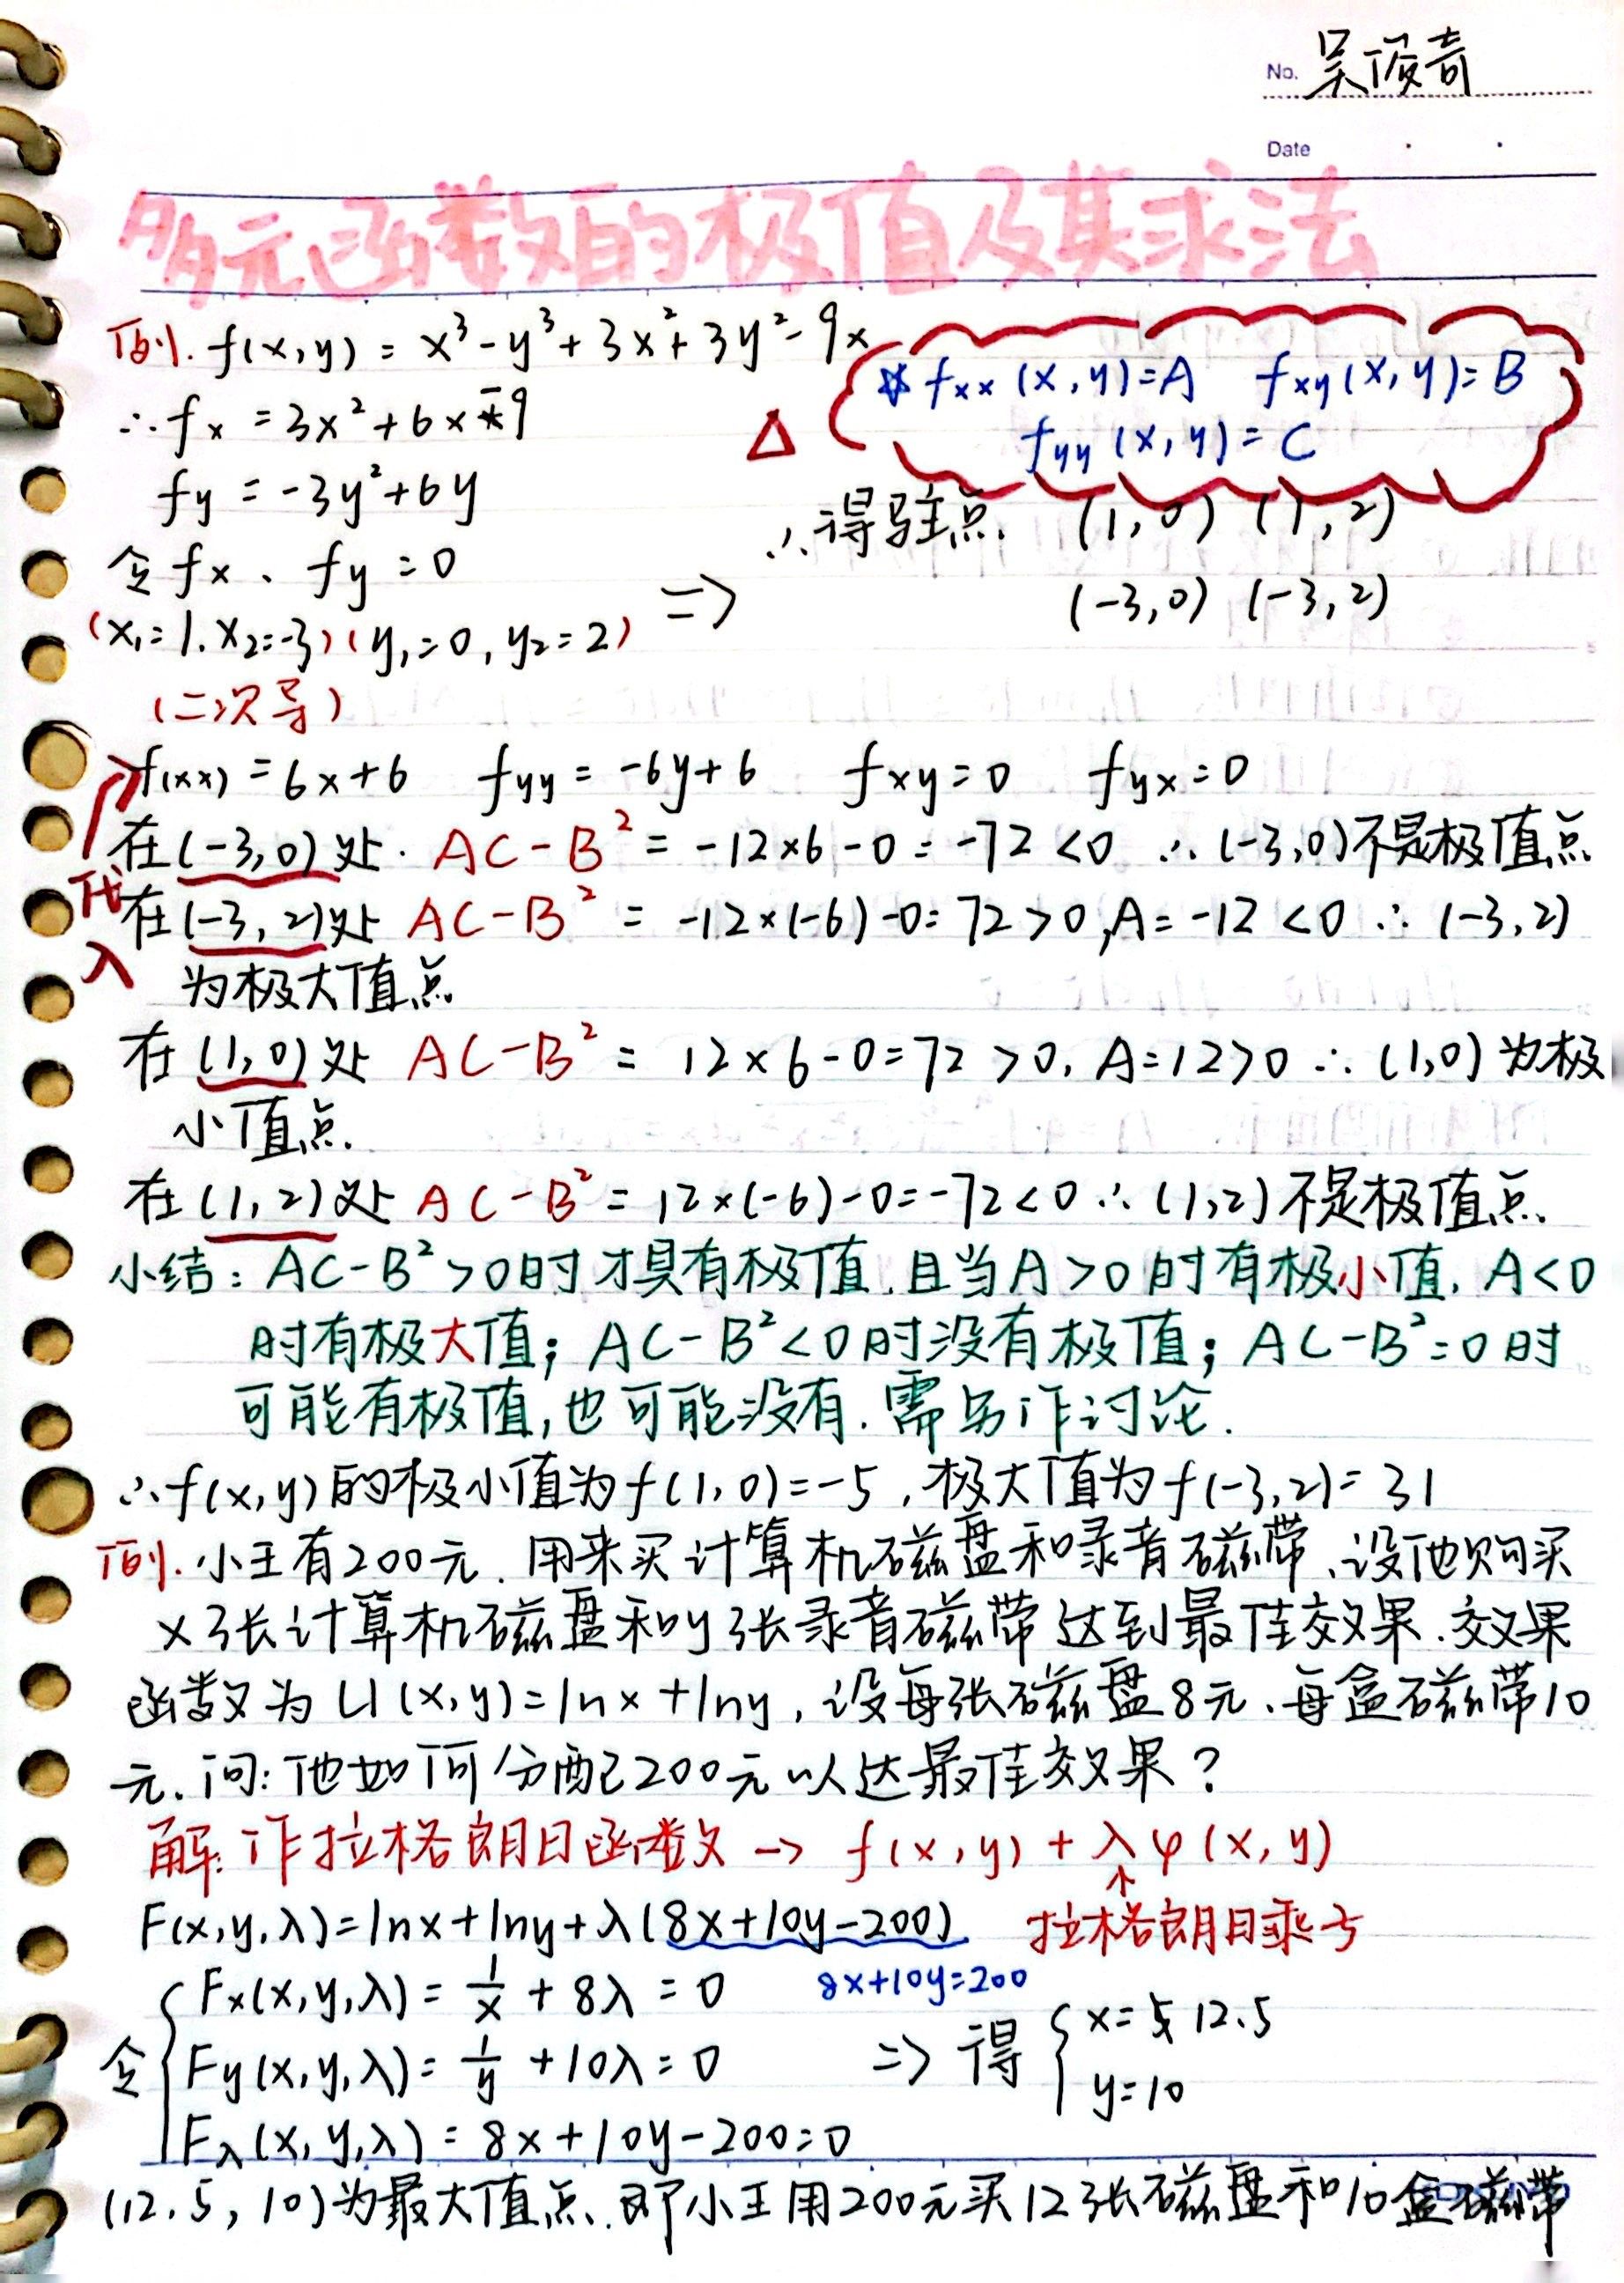 No. 吴俊奇
Date
多元函数的极值及其求法
例. f(x,y) = x³-y³+3x²+3y²-9x
☆ fxx(x,y)=A fxy(x,y)=B
fyy(x,y)=C
∴fx =3x²+6x-9
△
fy = -3y²+6y
令fx、fy=0
(x₁=1.x₂=-3)(y₁=0,y₂=2)
=>
∴得驻点. (1,0) (1,2)
(-3,0) (-3,2)
(二次导)
f(xx) =6x+6 fyy= -6y+6 fxy=0 fyx=0
代入
在(-3,0)处. AC-B² = -12×6-0=-72<0 ∴(-3,0)不是极值点
在(-3,2)处 AC-B² = -12×(-6)-0=72>0,A=-12<0 ∴(-3,2)
为极大值点
在(1,0)处 AC-B² = 12×6-0=72>0, A=12>0 ∴(1,0)为极
小值点.
在(1,2)处 AC-B²=12×(-6)-0=-72<0∴(1,2)不是极值点.
小结: AC-B²>0时才具有极值.且当A>0时有极小值, A<0
时有极大值; AC-B²<0时没有极值; AC-B²=0时
可能有极值,也可能没有.需另作讨论.
∴f(x,y)的极小值为f(1,0)=-5,极大值为f(-3,2)=31
例.小王有200元.用来买计算机磁盘和录音磁带、设他购买
x张计算机磁盘和y张录音磁带达到最佳效果.效果
函数为U(x,y)=lnx+lny,设每张磁盘8元、每盒磁带10
元.问:他如何分配200元以达最佳效果?
解:作拉格朗日函数 → f(x,y)+λφ(x,y)
↑
F(x,y,λ)=lnx+lny+λ(8x+10y-200) 拉格朗日乘子
8x+10y=200
令{Fx(x,y,λ)=1/x+8λ=0
Fy(x,y,λ)=1/y+10λ=0
Fλ(x,y,λ)=8x+10y-200=0
=>得{x=12.5
y=10
(12.5,10)为最大值点.即小王用200元买12张磁盘和10盒磁带